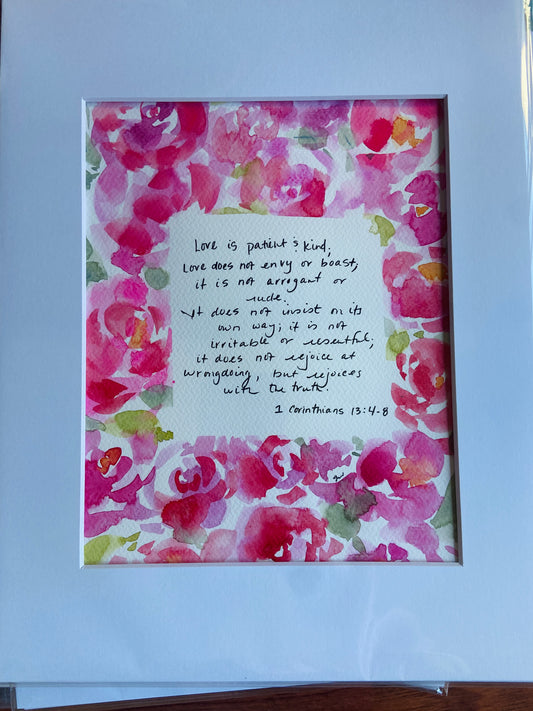 Love is patient & kind;
Love does not envy or boast;
it is not arrogant or
rude.
It does not insist on its
own way; it is not
irritable or resentful;
it does not rejoice at
wrongdoing, but rejoices
with the truth.
1 Corinthians 13:4-8